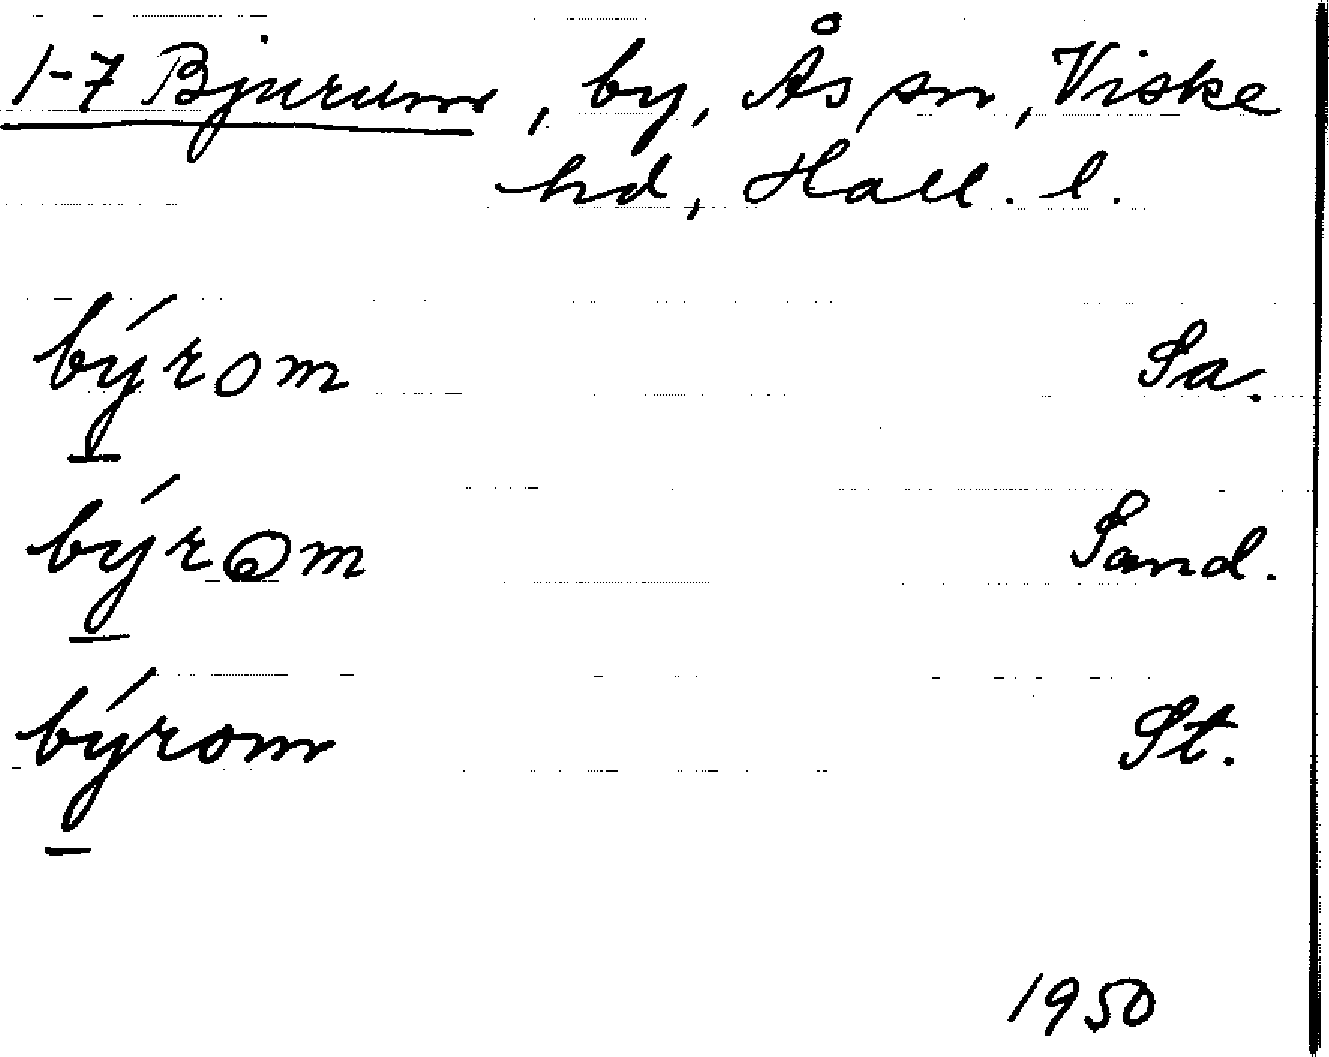 1-7 Bjurum, by, Ås sn, Viske
hd, Hall. l.
bý̠rom Sa.
bý̠rom Sand.
bý̠rom St.
1950